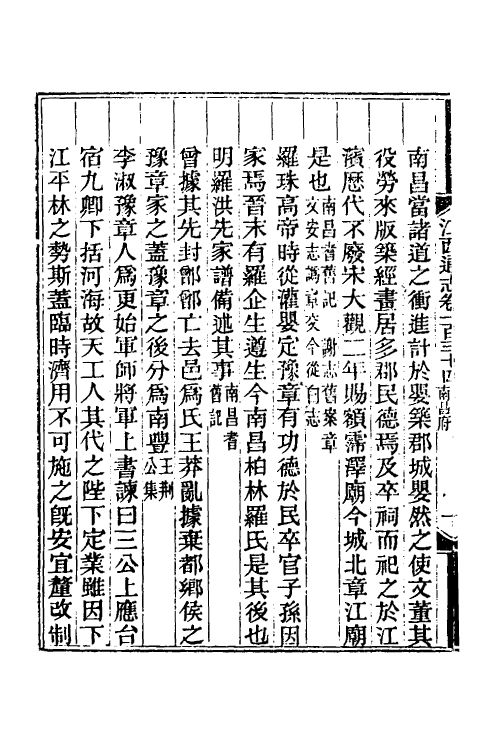 江西通志卷一百三十四 南昌府 一
南昌當諸道之衝進計於嬰築郡城嬰然之使文董其
役勞來版築經畫居多郡民德焉及卒祠而祀之於江
濱歷代不廢宋大觀二年賜額霈澤廟今城北章江廟
是也 南昌耆舊記 謝志舊案章文安志馮章交今從白志
羅珠高帝時從灌嬰定豫章有功德於民卒官子孫因
家焉晉末有羅企生遵生今南昌柏林羅氏是其後也
明羅洪先家譜備述其事 南昌耆舊記
曾據其先封鄫鄫亡去邑爲氏王莽亂據棄都鄉侯之
豫章家之蓋豫章之後分爲南豐 王荆公集
李淑豫章人爲更始軍師將軍上書諫曰三公上應台
宿九卿下括河海故天工人其代之陛下定業雖因下
江平林之勢斯蓋臨時濟用不可施之旣安宜釐改制